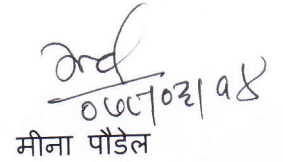 ०७८।०३।१४
मीना पौडेल